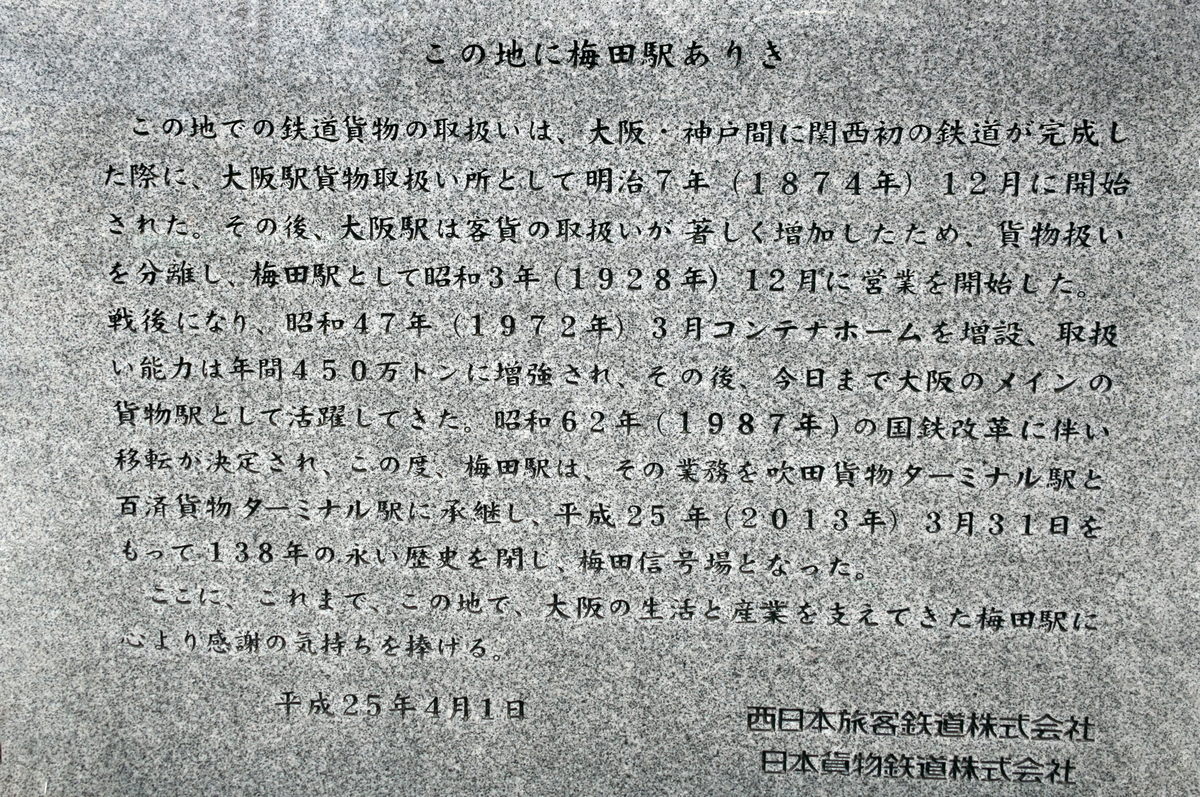 この地に梅田駅ありき
この地での鉄道貨物の取扱いは、大阪・神戸間に関西初の鉄道が完成し
た際に、大阪駅貨物取扱い所として明治7年(1874年)12月に開始
された。その後、大阪駅は客貨の取扱いが著しく増加したため、貨物扱い
を分離し、梅田駅として昭和3年(1928年)12月に営業を開始した。
戦後になり、昭和47年(1972年)3月コンテナホームを増設、取扱
い能力は年間450万トンに増強され、その後、今日まで大阪のメインの
貨物駅として活躍してきた。昭和62年(1987年)の国鉄改革に伴い
移転が決定され、この度、梅田駅は、その業務を吹田貨物ターミナル駅と
百済貨物ターミナル駅に承継し、平成25年(2013年)3月31日を
もって138年の永い歴史を閉じ、梅田信号場となった。
ここに、これまで、この地で、大阪の生活と産業を支えてきた梅田駅に
心より感謝の気持ちを捧げる。
平成25年4月1日
西日本旅客鉄道株式会社
日本貨物鉄道株式会社